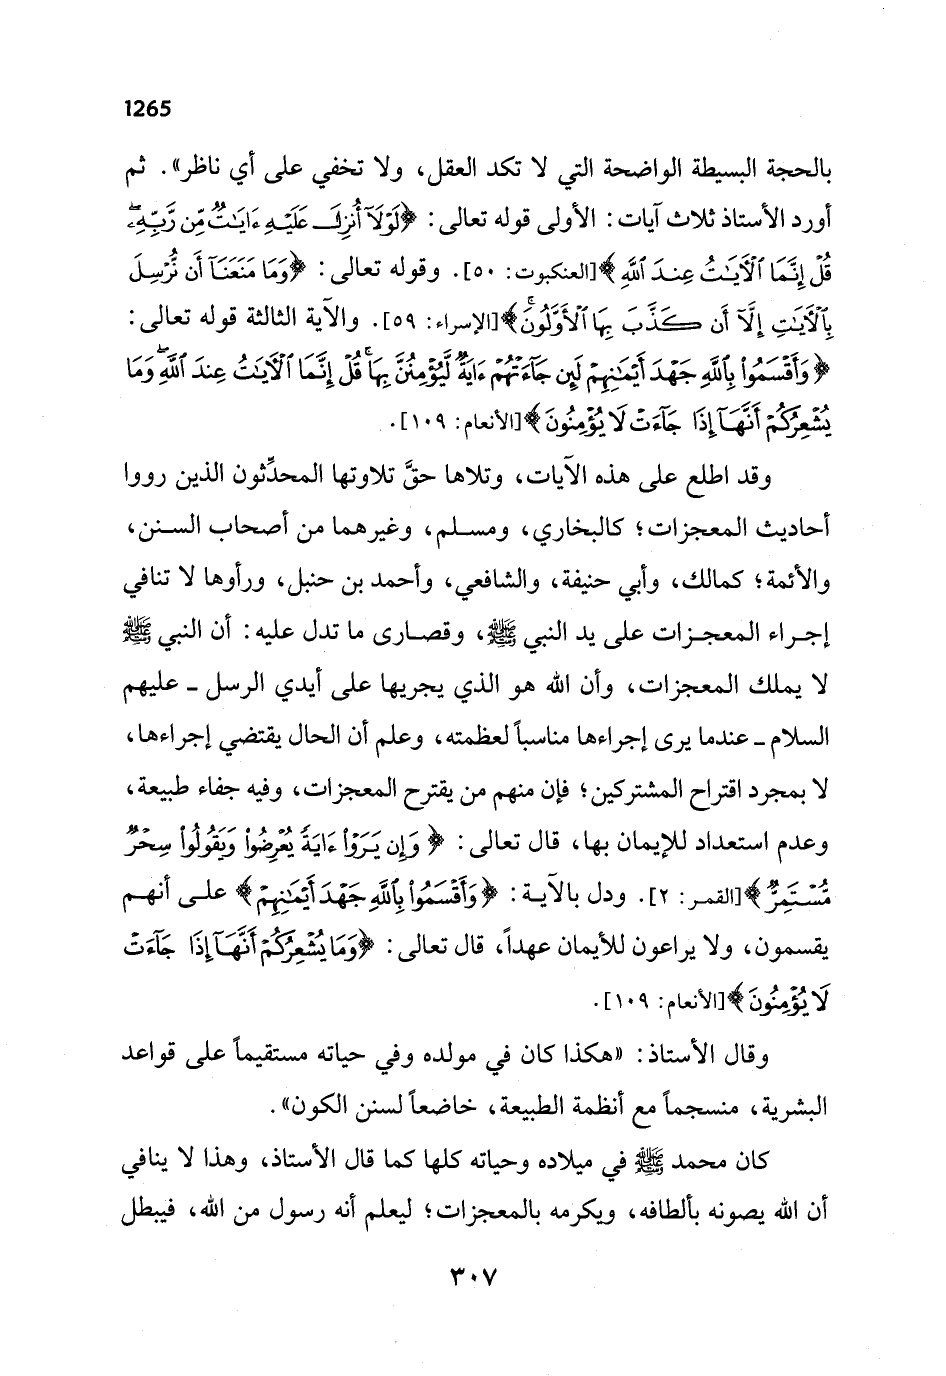 1265
بالحجة البسيطة الواضحة التي لا تكد العقل، ولا تخفي على أي ناظر». ثم
أورد الأستاذ ثلاث آيات: الأولى قوله تعالى: ﴿لَوْلَآ أُنزِلَ عَلَيْهِ ءَايَٰتٌ مِّن رَّبِّهِۦ
قُلْ إِنَّمَا ٱلْآيَٰتُ عِندَ ٱللَّهِ﴾ [العنكبوت: ٥٠]. وقوله تعالى: ﴿وَمَا مَنَعَنَآ أَن نُّرْسِلَ
بِٱلْآيَٰتِ إِلَّآ أَن كَذَّبَ بِهَا ٱلْأَوَّلُونَ﴾ [الإسراء: ٥٩]. والآية الثالثة قوله تعالى:
﴿وَأَقْسَمُوا۟ بِٱللَّهِ جَهْدَ أَيْمَٰنِهِمْ لَئِن جَآءَتْهُمْ ءَايَةٌ لَّيُؤْمِنُنَّ بِهَا قُلْ إِنَّمَا ٱلْآيَٰتُ عِندَ ٱللَّهِ وَمَا
يُشْعِرُكُمْ أَنَّهَآ إِذَا جَآءَتْ لَا يُؤْمِنُونَ﴾ [الأنعام: ١٠٩].
وقد اطلع على هذه الآيات، وتلاها حقَّ تلاوتها المحدِّثون الذين رووا
أحاديث المعجزات؛ كالبخاري، ومسلم، وغيرهما من أصحاب السنن،
والأئمة؛ كمالك، وأبي حنيفة، والشافعي، وأحمد بن حنبل، ورأوها لا تنافي
إجراء المعجزات على يد النبي ﷺ، وقصارى ما تدل عليه: أن النبي ﷺ
لا يملك المعجزات، وأن الله هو الذي يجريها على أيدي الرسل - عليهم
السلام - عندما يرى إجراءها مناسباً لعظمته، وعلم أن الحال يقتضي إجراءها،
لا بمجرد اقتراح المشتركين؛ فإن منهم من يقترح المعجزات، وفيه جفاء طبيعة،
وعدم استعداد للإيمان بها، قال تعالى: ﴿وَإِن يَرَوْا۟ ءَايَةً يُعْرِضُوا۟ وَيَقُولُوا۟ سِحْرٌ
مُّسْتَمِرٌّ﴾ [القمر: ٢]. ودل بالآية: ﴿وَأَقْسَمُوا۟ بِٱللَّهِ جَهْدَ أَيْمَٰنِهِمْ﴾ على أنهم
يقسمون، ولا يراعون للأيمان عهداً، قال تعالى: ﴿وَمَا يُشْعِرُكُمْ أَنَّهَآ إِذَا جَآءَتْ
لَا يُؤْمِنُونَ﴾ [الأنعام: ١٠٩].
وقال الأستاذ: «هكذا كان في مولده وفي حياته مستقيماً على قواعد
البشرية، منسجماً مع أنظمة الطبيعة، خاضعاً لسنن الكون».
كان محمد ﷺ في ميلاده وحياته كلها كما قال الأستاذ، وهذا لا ينافي
أن الله يصونه بألطافه، ويكرمه بالمعجزات؛ ليعلم أنه رسول من الله، فيبطل
٣٠٧